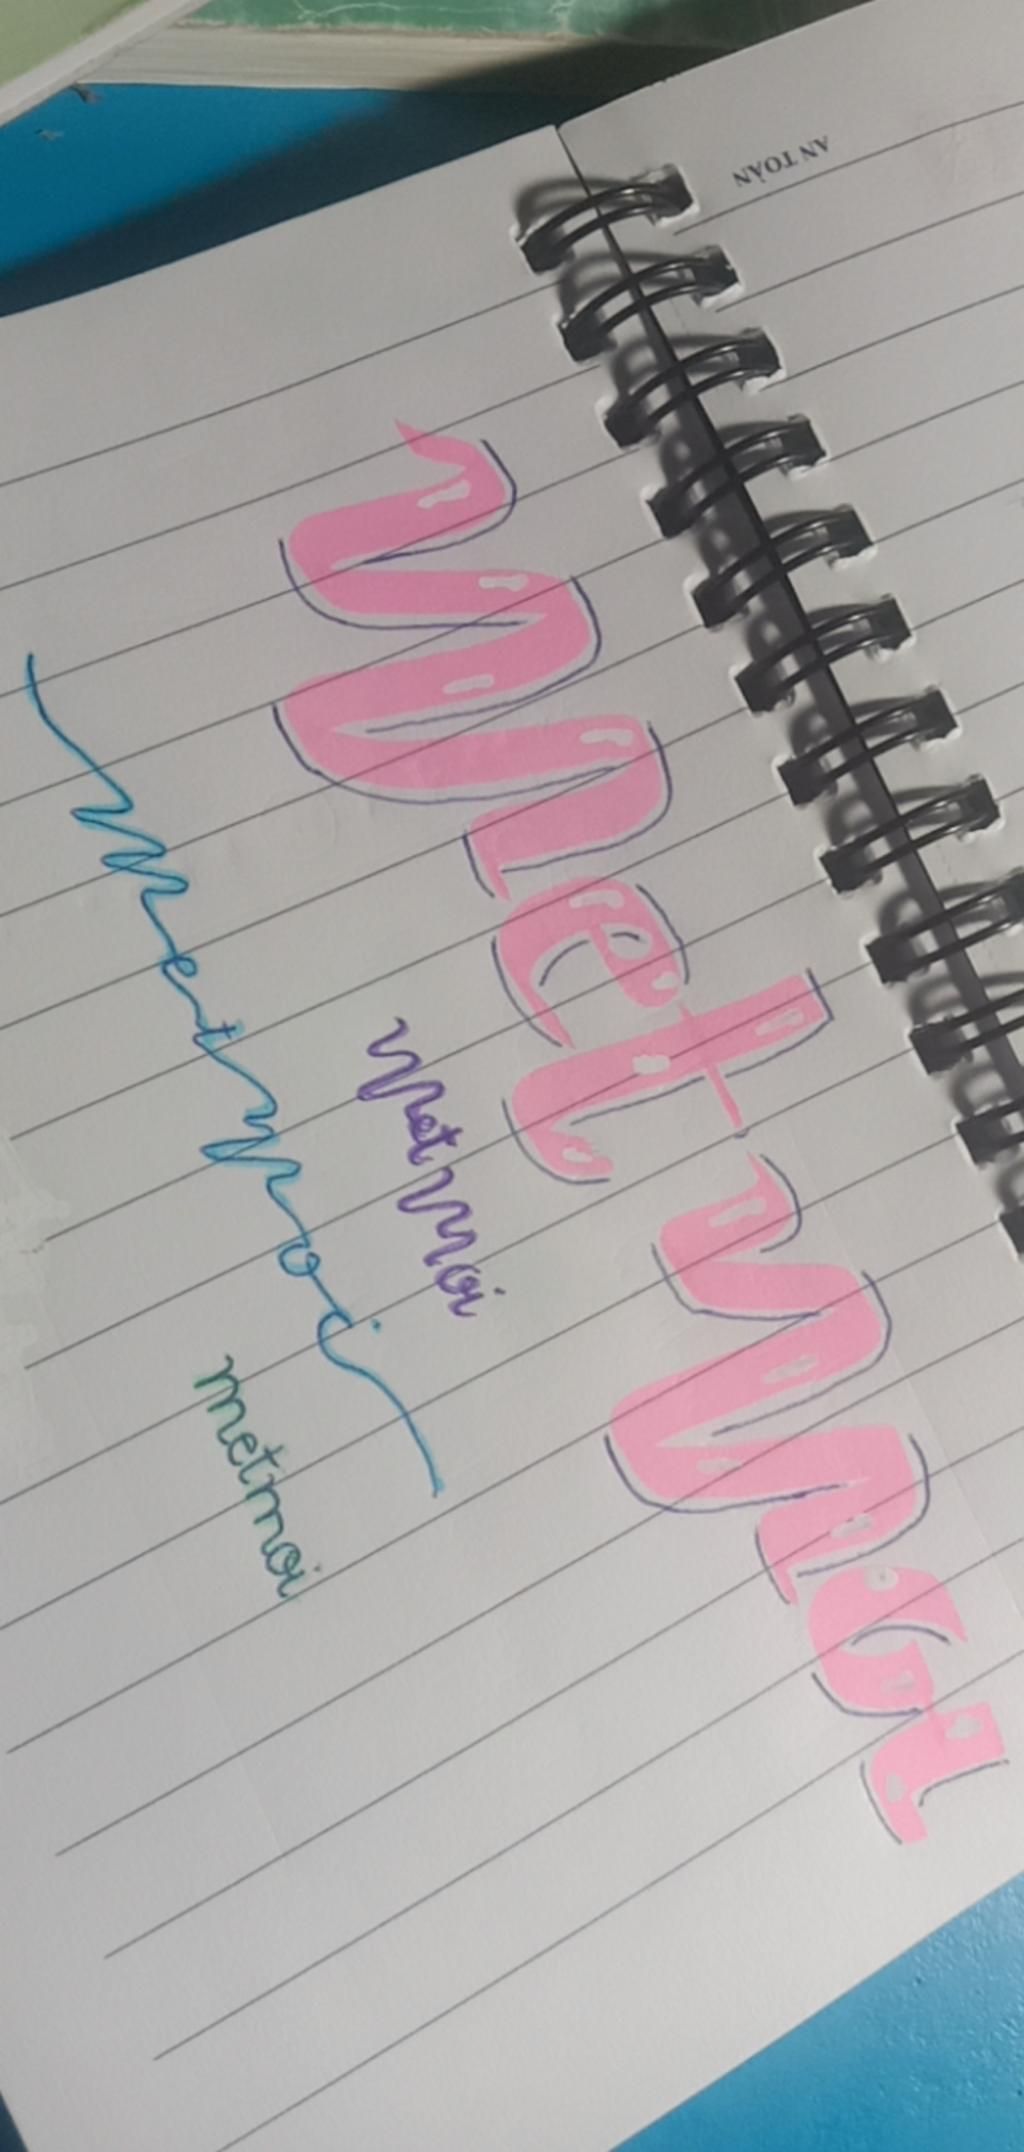 AN TOÀN
met moi
met moi
metmoi
metmoi